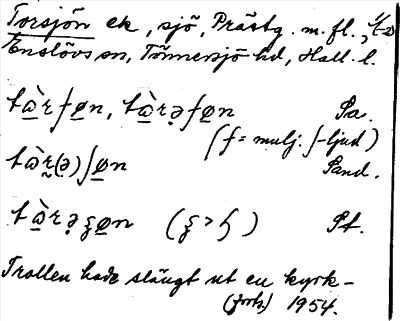 Torsjön ek, sjö, Prästg. m. fl.,
Enslövs sn, Tönnersjö hd, Hall. l.
tὰrʃøn, tὰrəʃøn Pa.
(ʃ = mulj. ʃ-ljud)
tὰr(ə)ʃøn Pand.
tὰrəξøn (ξ > ɧ) Pt.
Trollen hade slängt ut en kyrk-
(forts.) 1954.